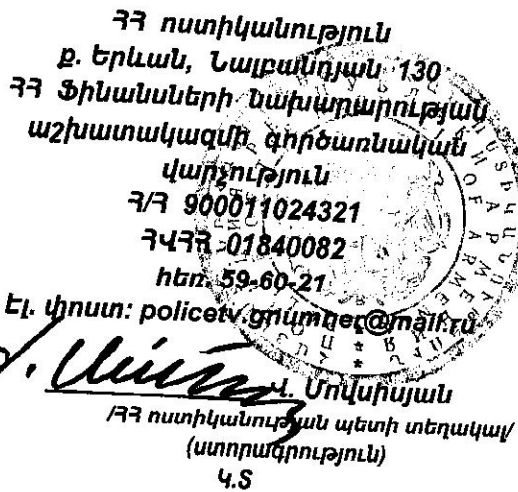 ՀՀ ոստիկանություն
ք. Երևան, Նալբանդյան 130
ՀՀ Ֆինանսների նախարարության
աշխատակազմի գործառնական
վարչություն
Հ/Հ 900011024321
ՀՎՀՀ 01840082
հեռ. 59-60-21
Էլ. փոստ: policetv.gnumner@mail.ru
Վ. Մովսիսյան
/ՀՀ ոստիկանության պետի տեղակալ/
(ստորագրություն)
Կ.Տ